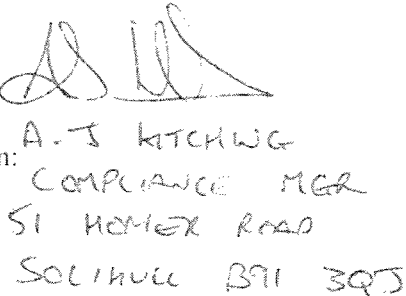 A.J KITCHING
n:
COMPLIANCE MGR
51 HOMER ROAD
SOLIHULL B91 3QJ